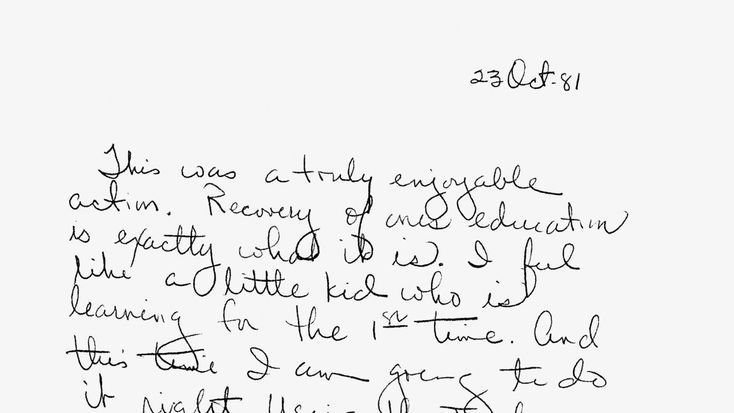 23 Oct. 81
This was a truly enjoyable
action. Recovery of ones education
is exactly what it is. I feel
like a little kid who is
learning for the 1st time. And
this time I am going to do
it right